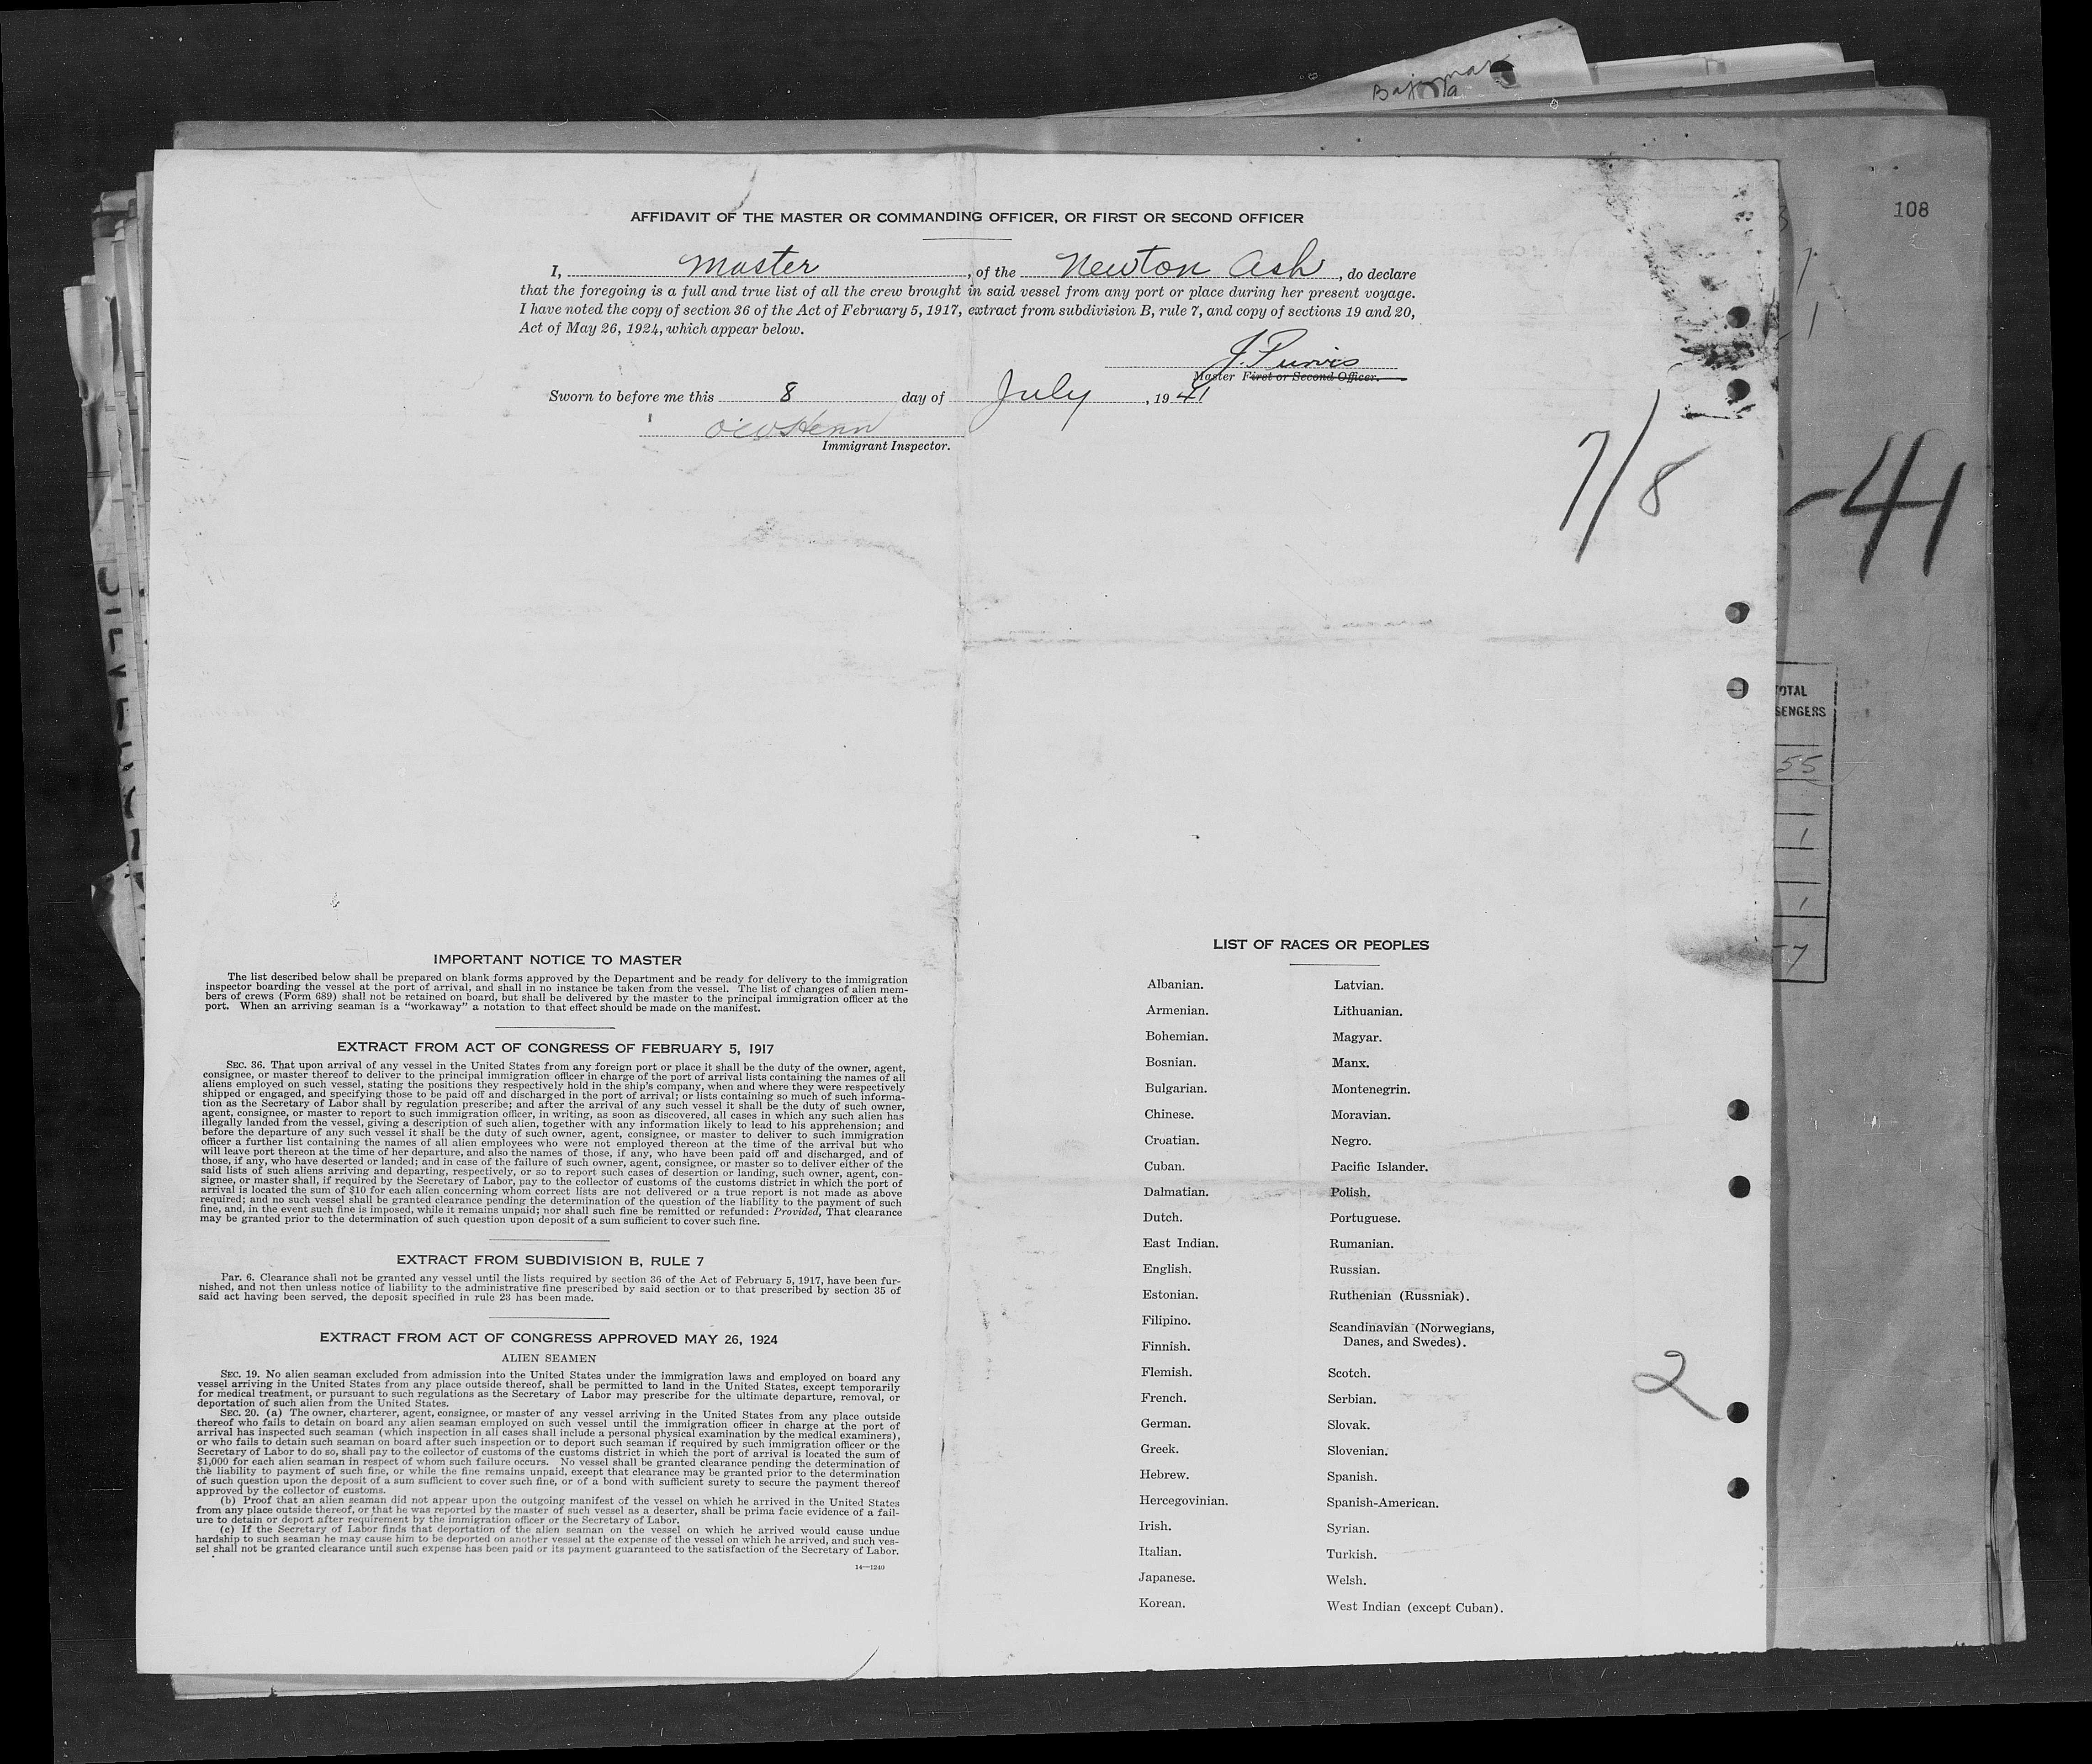 108
AFFIDAVIT OF THE MASTER OR COMMANDING OFFICER, OR FIRST OR SECOND OFFICER
I, Master, of the Newton Ash, do declare
that the foregoing is a full and true list of all the crew brought in said vessel from any port or place during her present voyage.
I have noted the copy of section 36 of the Act of February 5, 1917, extract from subdivision B, rule 7, and copy of sections 19 and 20,
Act of May 26, 1924, which appear below.
J. Purvis
Master First or Second Officer.
Sworn to before me this 8 day of July, 1941
Immigrant Inspector.
7/8
-41
TOTAL
SENGERS
55
1
1
7
IMPORTANT NOTICE TO MASTER
The list described below shall be prepared on blank forms approved by the Department and be ready for delivery to the immigration
inspector boarding the vessel at the port of arrival, and shall in no instance be taken from the vessel. The list of changes of alien mem-
bers of crews (Form 689) shall not be retained on board, but shall be delivered by the master to the principal immigration officer at the
port. When an arriving seaman is a "workaway" a notation to that effect should be made on the manifest.
EXTRACT FROM ACT OF CONGRESS OF FEBRUARY 5, 1917
SEC. 36. That upon arrival of any vessel in the United States from any foreign port or place it shall be the duty of the owner, agent,
consignee, or master thereof to deliver to the principal immigration officer in charge of the port of arrival lists containing the names of all
aliens employed on such vessel, stating the positions they respectively hold in the ship's company, when and where they were respectively
shipped or engaged, and specifying those to be paid off and discharged in the port of arrival; or lists containing so much of such informa-
tion as the Secretary of Labor shall by regulation prescribe; and after the arrival of any such vessel it shall be the duty of such owner,
agent, consignee, or master to report to such immigration officer, in writing, as soon as discovered, all cases in which any such alien has
illegally landed from the vessel, giving a description of such alien, together with any information likely to lead to his apprehension; and
before the departure of any such vessel it shall be the duty of such owner, agent, consignee, or master to deliver to such immigration
officer a further list containing the names of all alien employees who were not employed thereon at the time of the arrival but who
will leave port thereon at the time of her departure, and also the names of those, if any, who have been paid off and discharged, and of
those, if any, who have deserted or landed; and in case of the failure of such owner, agent, consignee, or master so to deliver either of the
said lists of such aliens arriving and departing, respectively, or so to report such cases of desertion or landing, such owner, agent, con-
signee, or master shall, if required by the Secretary of Labor, pay to the collector of customs of the customs district in which the port of
arrival is located the sum of $10 for each alien concerning whom correct lists are not delivered or a true report is not made as above
required; and no such vessel shall be granted clearance pending the determination of the question of the liability to the payment of such
fine, and, in the event such fine is imposed, while it remains unpaid; nor shall such fine be remitted or refunded: Provided, That clearance
may be granted prior to the determination of such question upon deposit of a sum sufficient to cover such fine.
EXTRACT FROM SUBDIVISION B, RULE 7
Par. 6. Clearance shall not be granted any vessel until the lists required by section 36 of the Act of February 5, 1917, have been fur-
nished, and not then unless notice of liability to the administrative fine prescribed by said section or to that prescribed by section 35 of
said act having been served, the deposit specified in rule 23 has been made.
EXTRACT FROM ACT OF CONGRESS APPROVED MAY 26, 1924
ALIEN SEAMEN
SEC. 19. No alien seaman excluded from admission into the United States under the immigration laws and employed on board any
vessel arriving in the United States from any place outside thereof, shall be permitted to land in the United States, except temporarily
for medical treatment, or pursuant to such regulations as the Secretary of Labor may prescribe for the ultimate departure, removal, or
deportation of such alien from the United States.
SEC. 20. (a) The owner, charterer, agent, consignee, or master of any vessel arriving in the United States from any place outside
thereof who fails to detain on board any alien seaman employed on such vessel until the immigration officer in charge at the port of
arrival has inspected such seaman (which inspection in all cases shall include a personal physical examination by the medical examiners),
or who fails to detain such seaman on board after such inspection or to deport such seaman if required by such immigration officer or the
Secretary of Labor to do so, shall pay to the collector of customs of the customs district in which the port of arrival is located the sum of
$1,000 for each alien seaman in respect of whom such failure occurs. No vessel shall be granted clearance pending the determination of
the liability to payment of such fine, or while the fine remains unpaid, except that clearance may be granted prior to the determination
of such question upon the deposit of a sum sufficient to cover such fine, or of a bond with sufficient surety to secure the payment thereof
approved by the collector of customs.
(b) Proof that an alien seaman did not appear upon the outgoing manifest of the vessel on which he arrived in the United States
from any place outside thereof, or that he was reported by the master of such vessel as a deserter, shall be prima facie evidence of a fail-
ure to detain or deport after requirement by the immigration officer or the Secretary of Labor.
(c) If the Secretary of Labor finds that deportation of the alien seaman on the vessel on which he arrived would cause undue
hardship to such seaman he may cause him to be deported on another vessel at the expense of the vessel on which he arrived, and such ves-
sel shall not be granted clearance until such expense has been paid or its payment guaranteed to the satisfaction of the Secretary of Labor.
14—1240
LIST OF RACES OR PEOPLES
Albanian.
Armenian.
Bohemian.
Bosnian.
Bulgarian.
Chinese.
Croatian.
Cuban.
Dalmatian.
Dutch.
East Indian.
English.
Estonian.
Filipino.
Finnish.
Flemish.
French.
German.
Greek.
Hebrew.
Hercegovinian.
Irish.
Italian.
Japanese.
Korean.
Latvian.
Lithuanian.
Magyar.
Manx.
Montenegrin.
Moravian.
Negro.
Pacific Islander.
Polish.
Portuguese.
Rumanian.
Russian.
Ruthenian (Russniak).
Scandinavian (Norwegians,
Danes, and Swedes).
Scotch.
Serbian.
Slovak.
Slovenian.
Spanish.
Spanish-American.
Syrian.
Turkish.
Welsh.
West Indian (except Cuban).
2